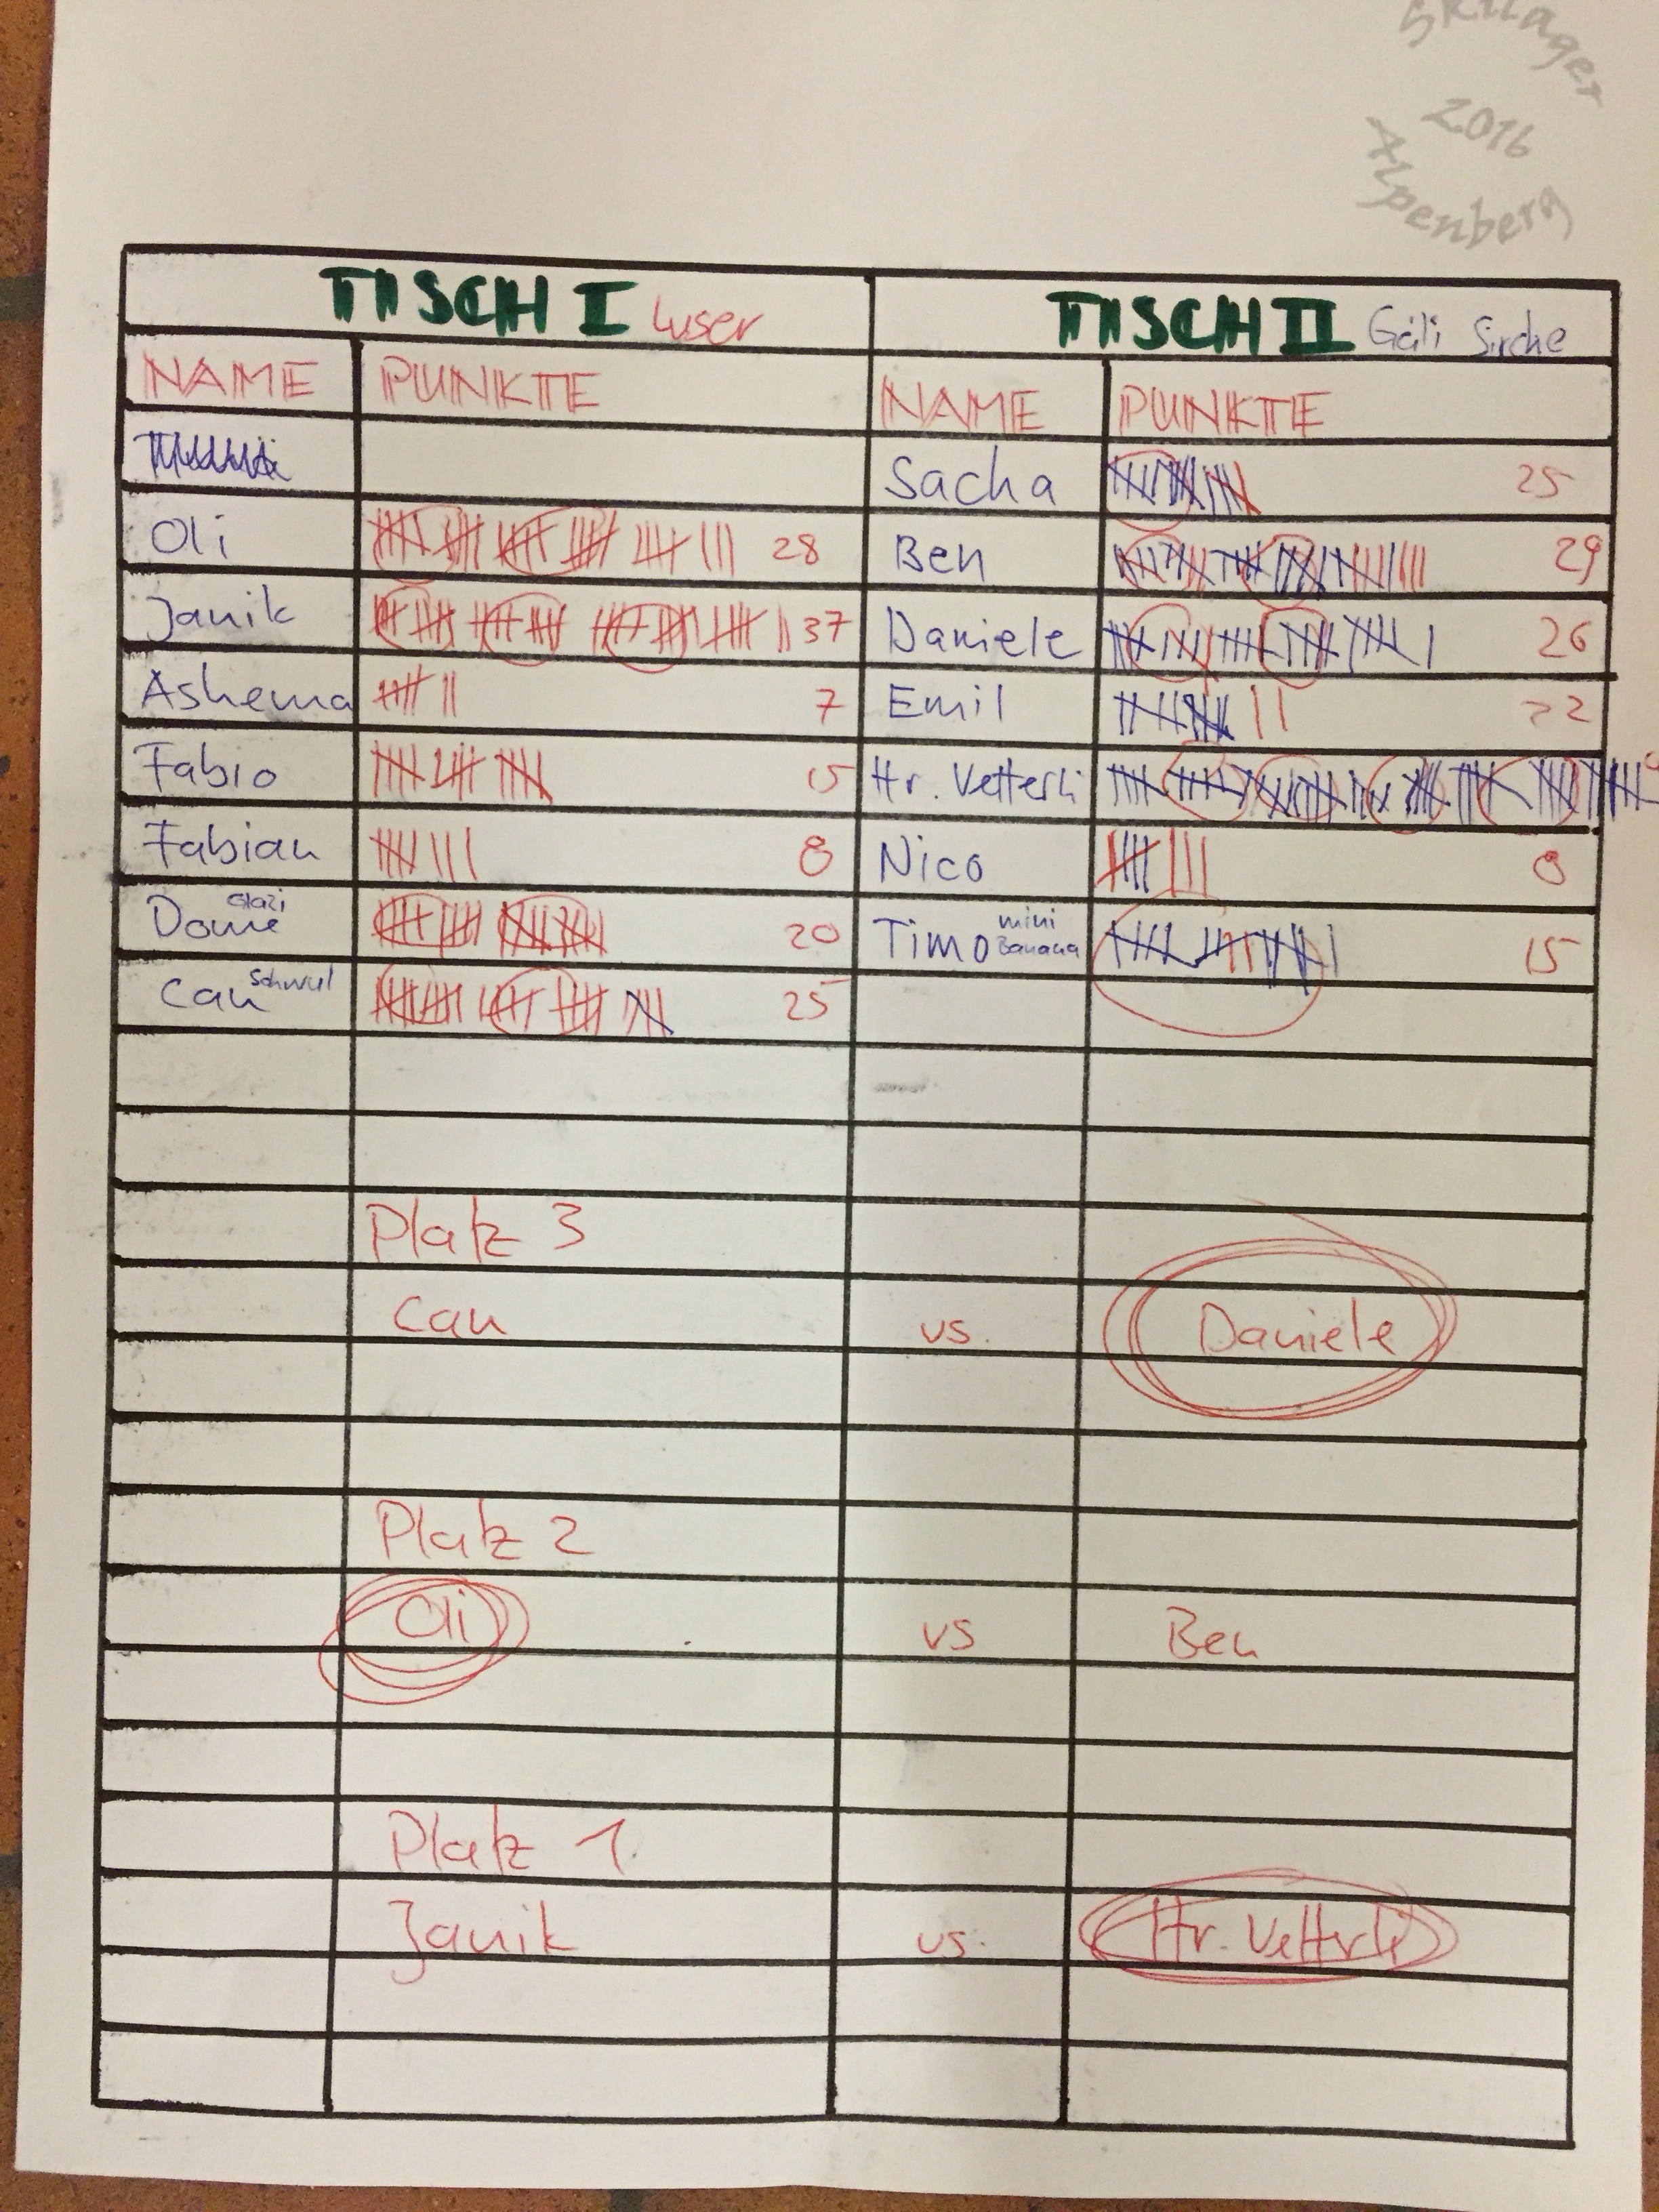 Skilager
2016
Alpenberg
TISCH I Luser TISCH II Geili Sieche
NAME PUNKTE NAME PUNKTE
Sacha 25
Oli 28 Ben 29
Janik 37 Daniele 26
Ashema 7 Emil 22
Fabio 15 Hr. Vetterli
Fabian 8 Nico 8
Dome 20 Timo mini Banana 15
Can schwul 25
Platz 3
Can vs. Daniele
Platz 2
Oli vs Ben
Platz 1
Janik vs. Hr. Vetterli